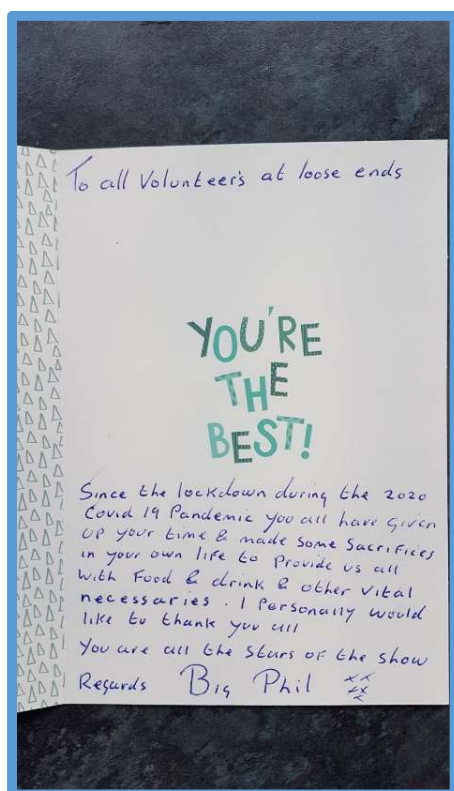 To all Volunteer's at loose ends
YOU'RE
THE
BEST!
Since the lockdown during the 2020
Covid 19 Pandemic you all have Given
up your time & made some Sacrifices
in your own life to Provide us all
with Food & drink & other vital
necessaries. I Personally would
like to thank you all
You are all the Stars of the show
Regards Big Phil xx
xx
x